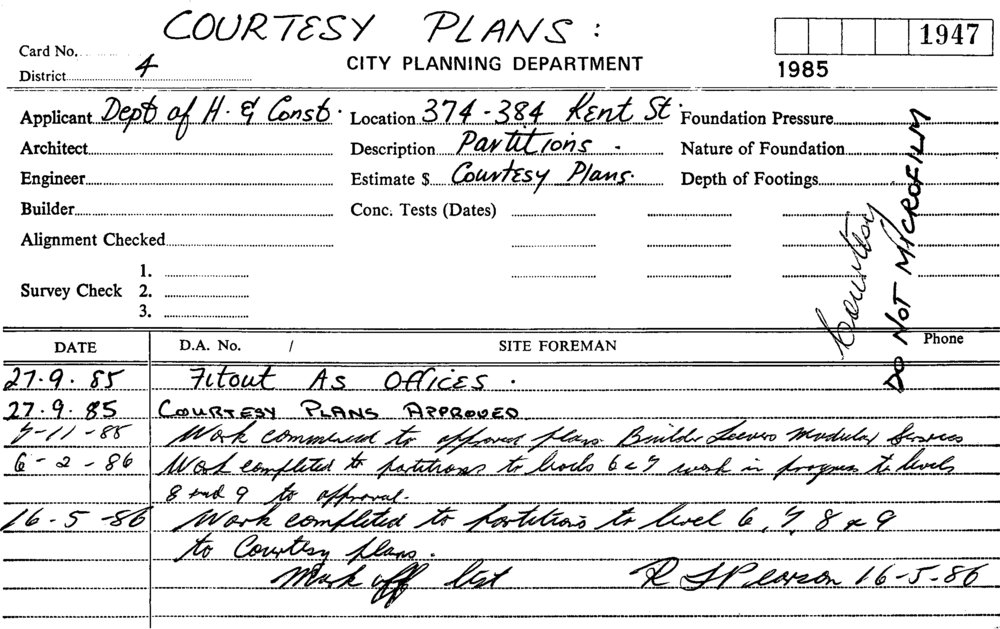 COURTESY PLANS:
Card No.
1947
District 4
CITY PLANNING DEPARTMENT
1985
Applicant Dept of H. & Const. Location 374-384 Kent St. Foundation Pressure
Architect Description Partitions. Nature of Foundation
Engineer Estimate $ Courtesy Plans. Depth of Footings
Builder Conc. Tests (Dates)
Alignment Checked
1.
Survey Check 2.
3.
Courtesy
DO NOT MICROFILM
DATE D.A. No. / SITE FOREMAN Phone
27.9.85 Fitout As Offices.
27.9.85 COURTESY PLANS APPROVED
7-11-85 Work commenced to approved plans Builder Modular Services
6-2-86 Work completed to partitions to levels 6 & 7 work in progress to levels
8 and 9 to approval.
16-5-86 Work completed to partitions to level 6, 7, 8 & 9
to Courtesy plans.
Mark off list R Pearson 16-5-86